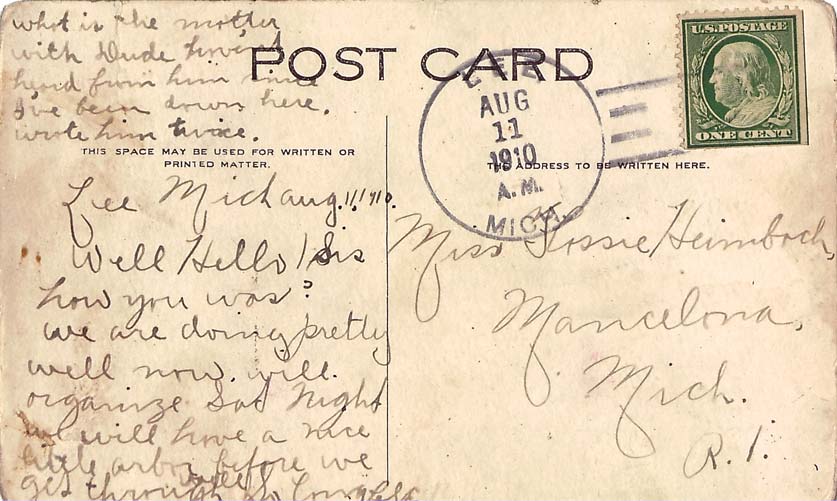 what is the matter
with Dude havent
heard from him since
I've been down here.
wrote him twice.
POST CARD
THIS SPACE MAY BE USED FOR WRITTEN OR
PRINTED MATTER.
THE ADDRESS TO BE WRITTEN HERE.
LEE
AUG
11
1910
A.M.
MICH.
U.S. POSTAGE
ONE CENT
Lee Mich aug. 11, 1910.
Well Hello! Sis
how you was?
we are doing pretty
well now. will
organize Sat Night
we will have a nice
little arbor before we
get through
Miss Heimbach,
Mancelona,
Mich.
R. 1.